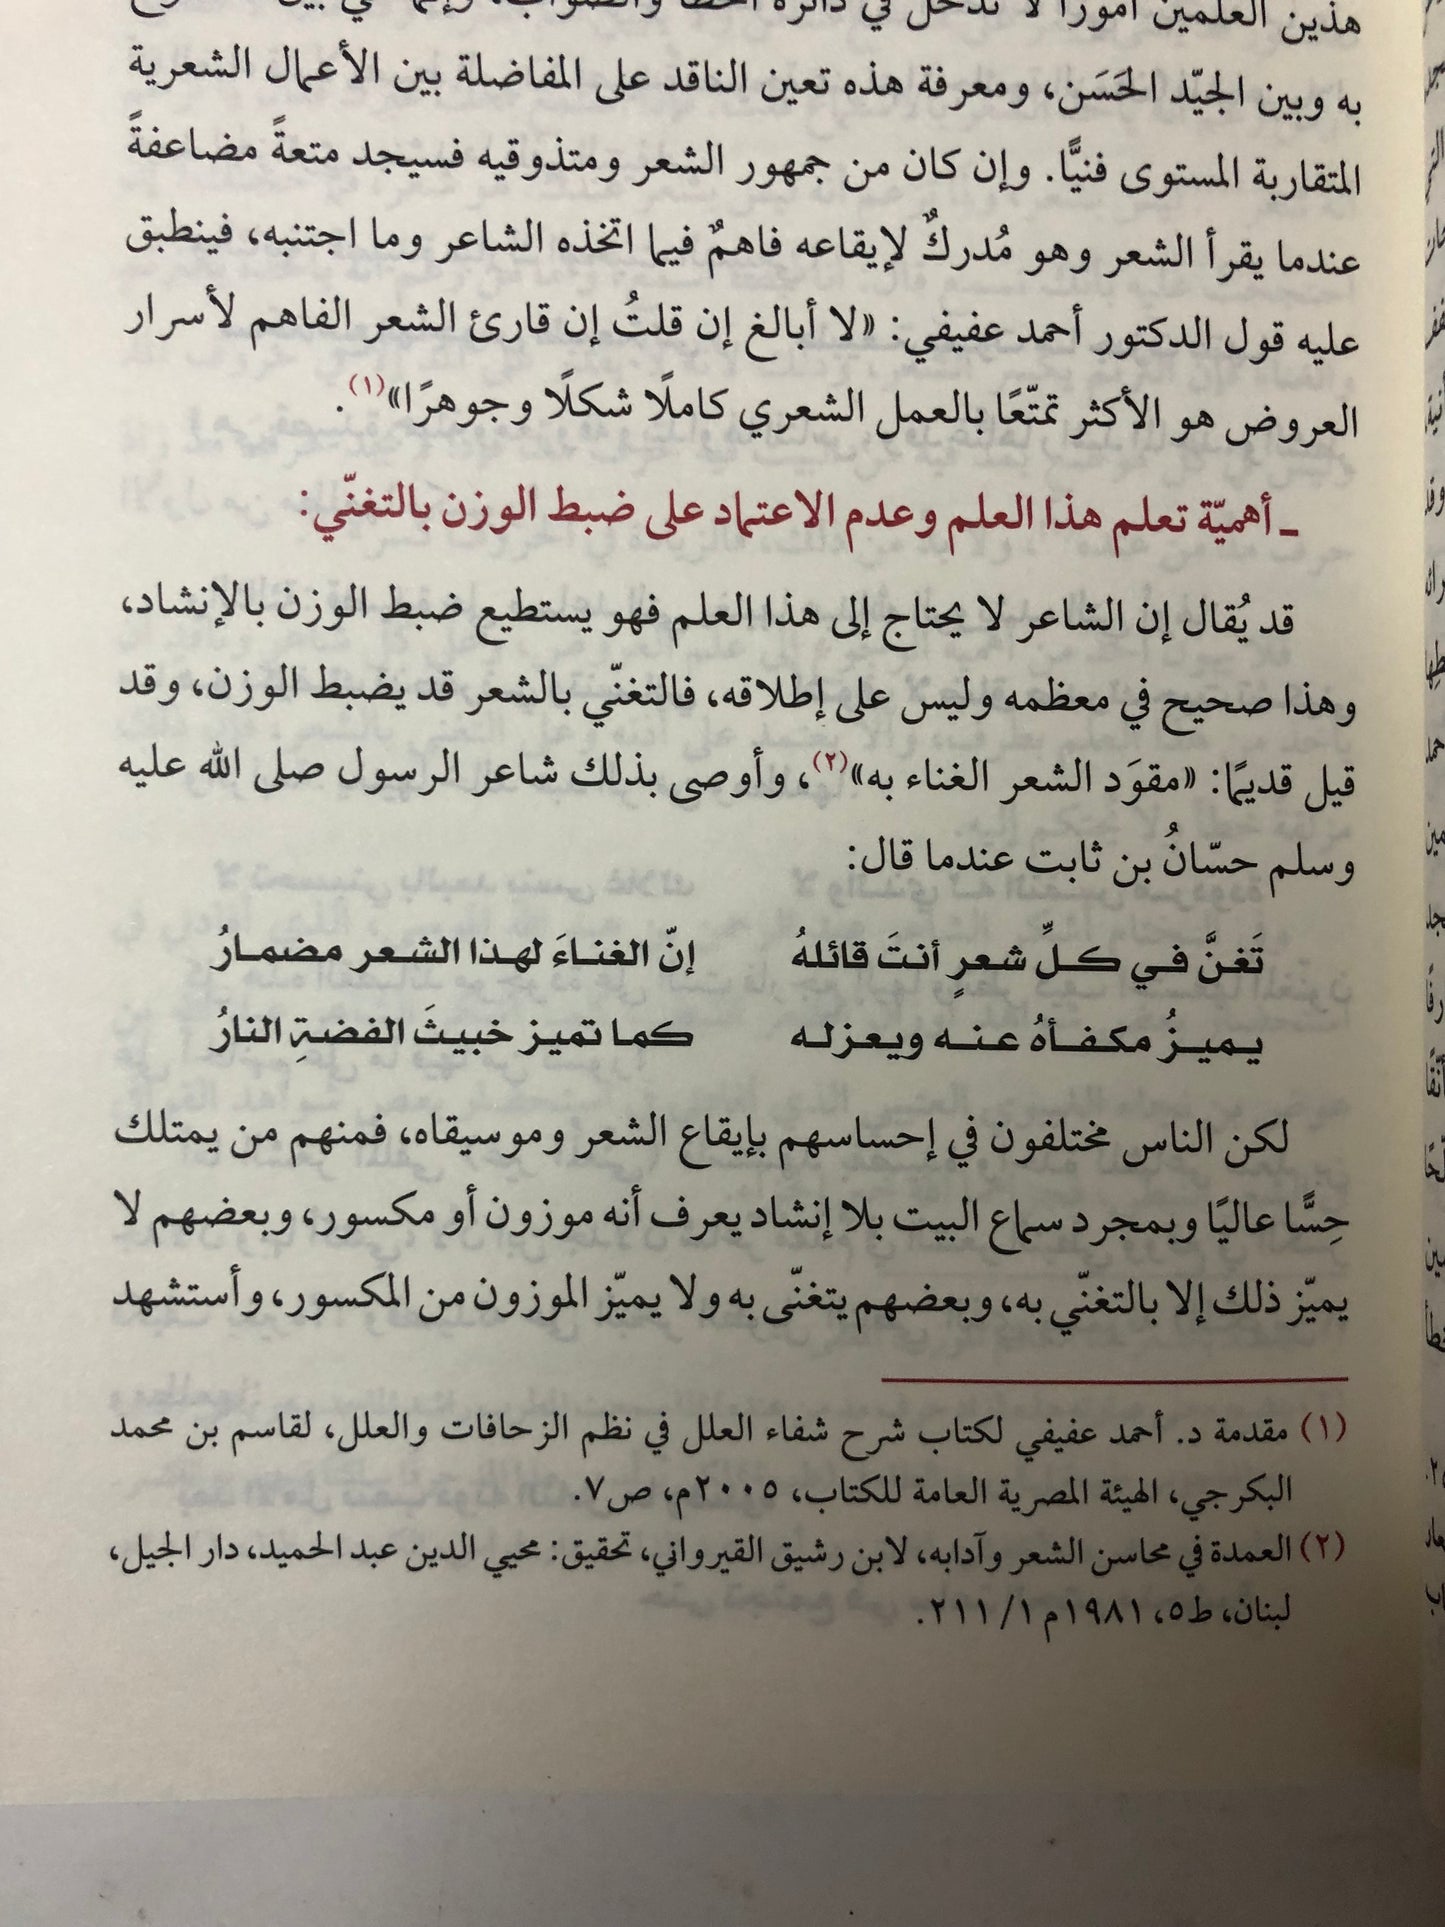 هذين العلمين أمورًا لا تدخل في دائرة الخطأ والصواب، وإنما هي بين
به وبين الجيّد الحَسَن، ومعرفة هذه تعين الناقد على المفاضلة بين الأعمال الشعرية
المتقاربة المستوى فنيًّا. وإن كان من جمهور الشعر ومتذوقيه فسيجد متعةً مضاعفةً
عندما يقرأ الشعر وهو مُدركٌ لإيقاعه فاهمٌ فيما اتخذه الشاعر وما اجتنبه، فينطبق
عليه قول الدكتور أحمد عفيفي: «لا أبالغ إن قلتُ إن قارئ الشعر الفاهم لأسرار
العروض هو الأكثر تمتّعًا بالعمل الشعري كاملًا شكلًا وجوهرًا»(١).
ـ أهميّة تعلم هذا العلم وعدم الاعتماد على ضبط الوزن بالتغنّي:
قد يُقال إن الشاعر لا يحتاج إلى هذا العلم فهو يستطيع ضبط الوزن بالإنشاد،
وهذا صحيح في معظمه وليس على إطلاقه، فالتغنّي بالشعر قد يضبط الوزن، وقد
قيل قديمًا: «مقوَد الشعر الغناء به»(٢)، وأوصى بذلك شاعر الرسول صلى الله عليه
وسلم حسّانُ بن ثابت عندما قال:
تَغنَّ في كلِّ شعرٍ أنتَ قائلهُ إنّ الغناءَ لهذا الشعر مضمارُ
يميزُ مكفأهُ عنه ويعزله كما تميز خبيثَ الفضةِ النارُ
لكن الناس مختلفون في إحساسهم بإيقاع الشعر وموسيقاه، فمنهم من يمتلك
حِسًّا عاليًا وبمجرد سماع البيت بلا إنشاد يعرف أنه موزون أو مكسور، وبعضهم لا
يميّز ذلك إلا بالتغنّي به، وبعضهم يتغنّى به ولا يميّز الموزون من المكسور، وأستشهد
(١) مقدمة د. أحمد عفيفي لكتاب شرح شفاء العلل في نظم الزحافات والعلل، لقاسم بن محمد
البكرجي، الهيئة المصرية العامة للكتاب، ٢٠٠٥م، ص٧.
(٢) العمدة في محاسن الشعر وآدابه، لابن رشيق القيرواني، تحقيق: محيي الدين عبد الحميد، دار الجيل،
لبنان، ط٥، ١٩٨١م ١/ ٢١١.